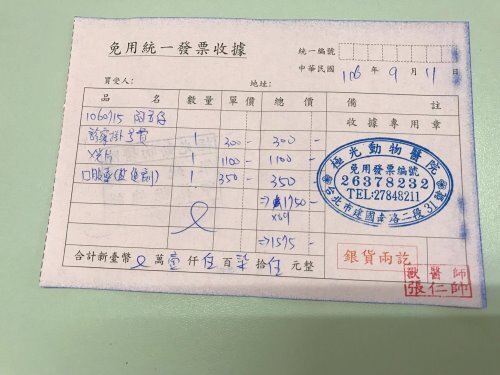 免用統一發票收據
統一編號
中華民國 106 年 9 月 11 日
買受人： 地址：
品名 數量 單價 總價 備註
收據專用章
診察掛號費 1 300- 300-
X光片 1 1100- 1100-
1 350- 350
⇒1750-
x0.9
⇒1575-
極光動物醫院
免用發票編號
26378232
TEL:27848211
台北市建國南路二段31號
銀貨兩訖
獸醫師
張仁帥
合計新臺幣 萬壹仟伍百柒拾伍元整